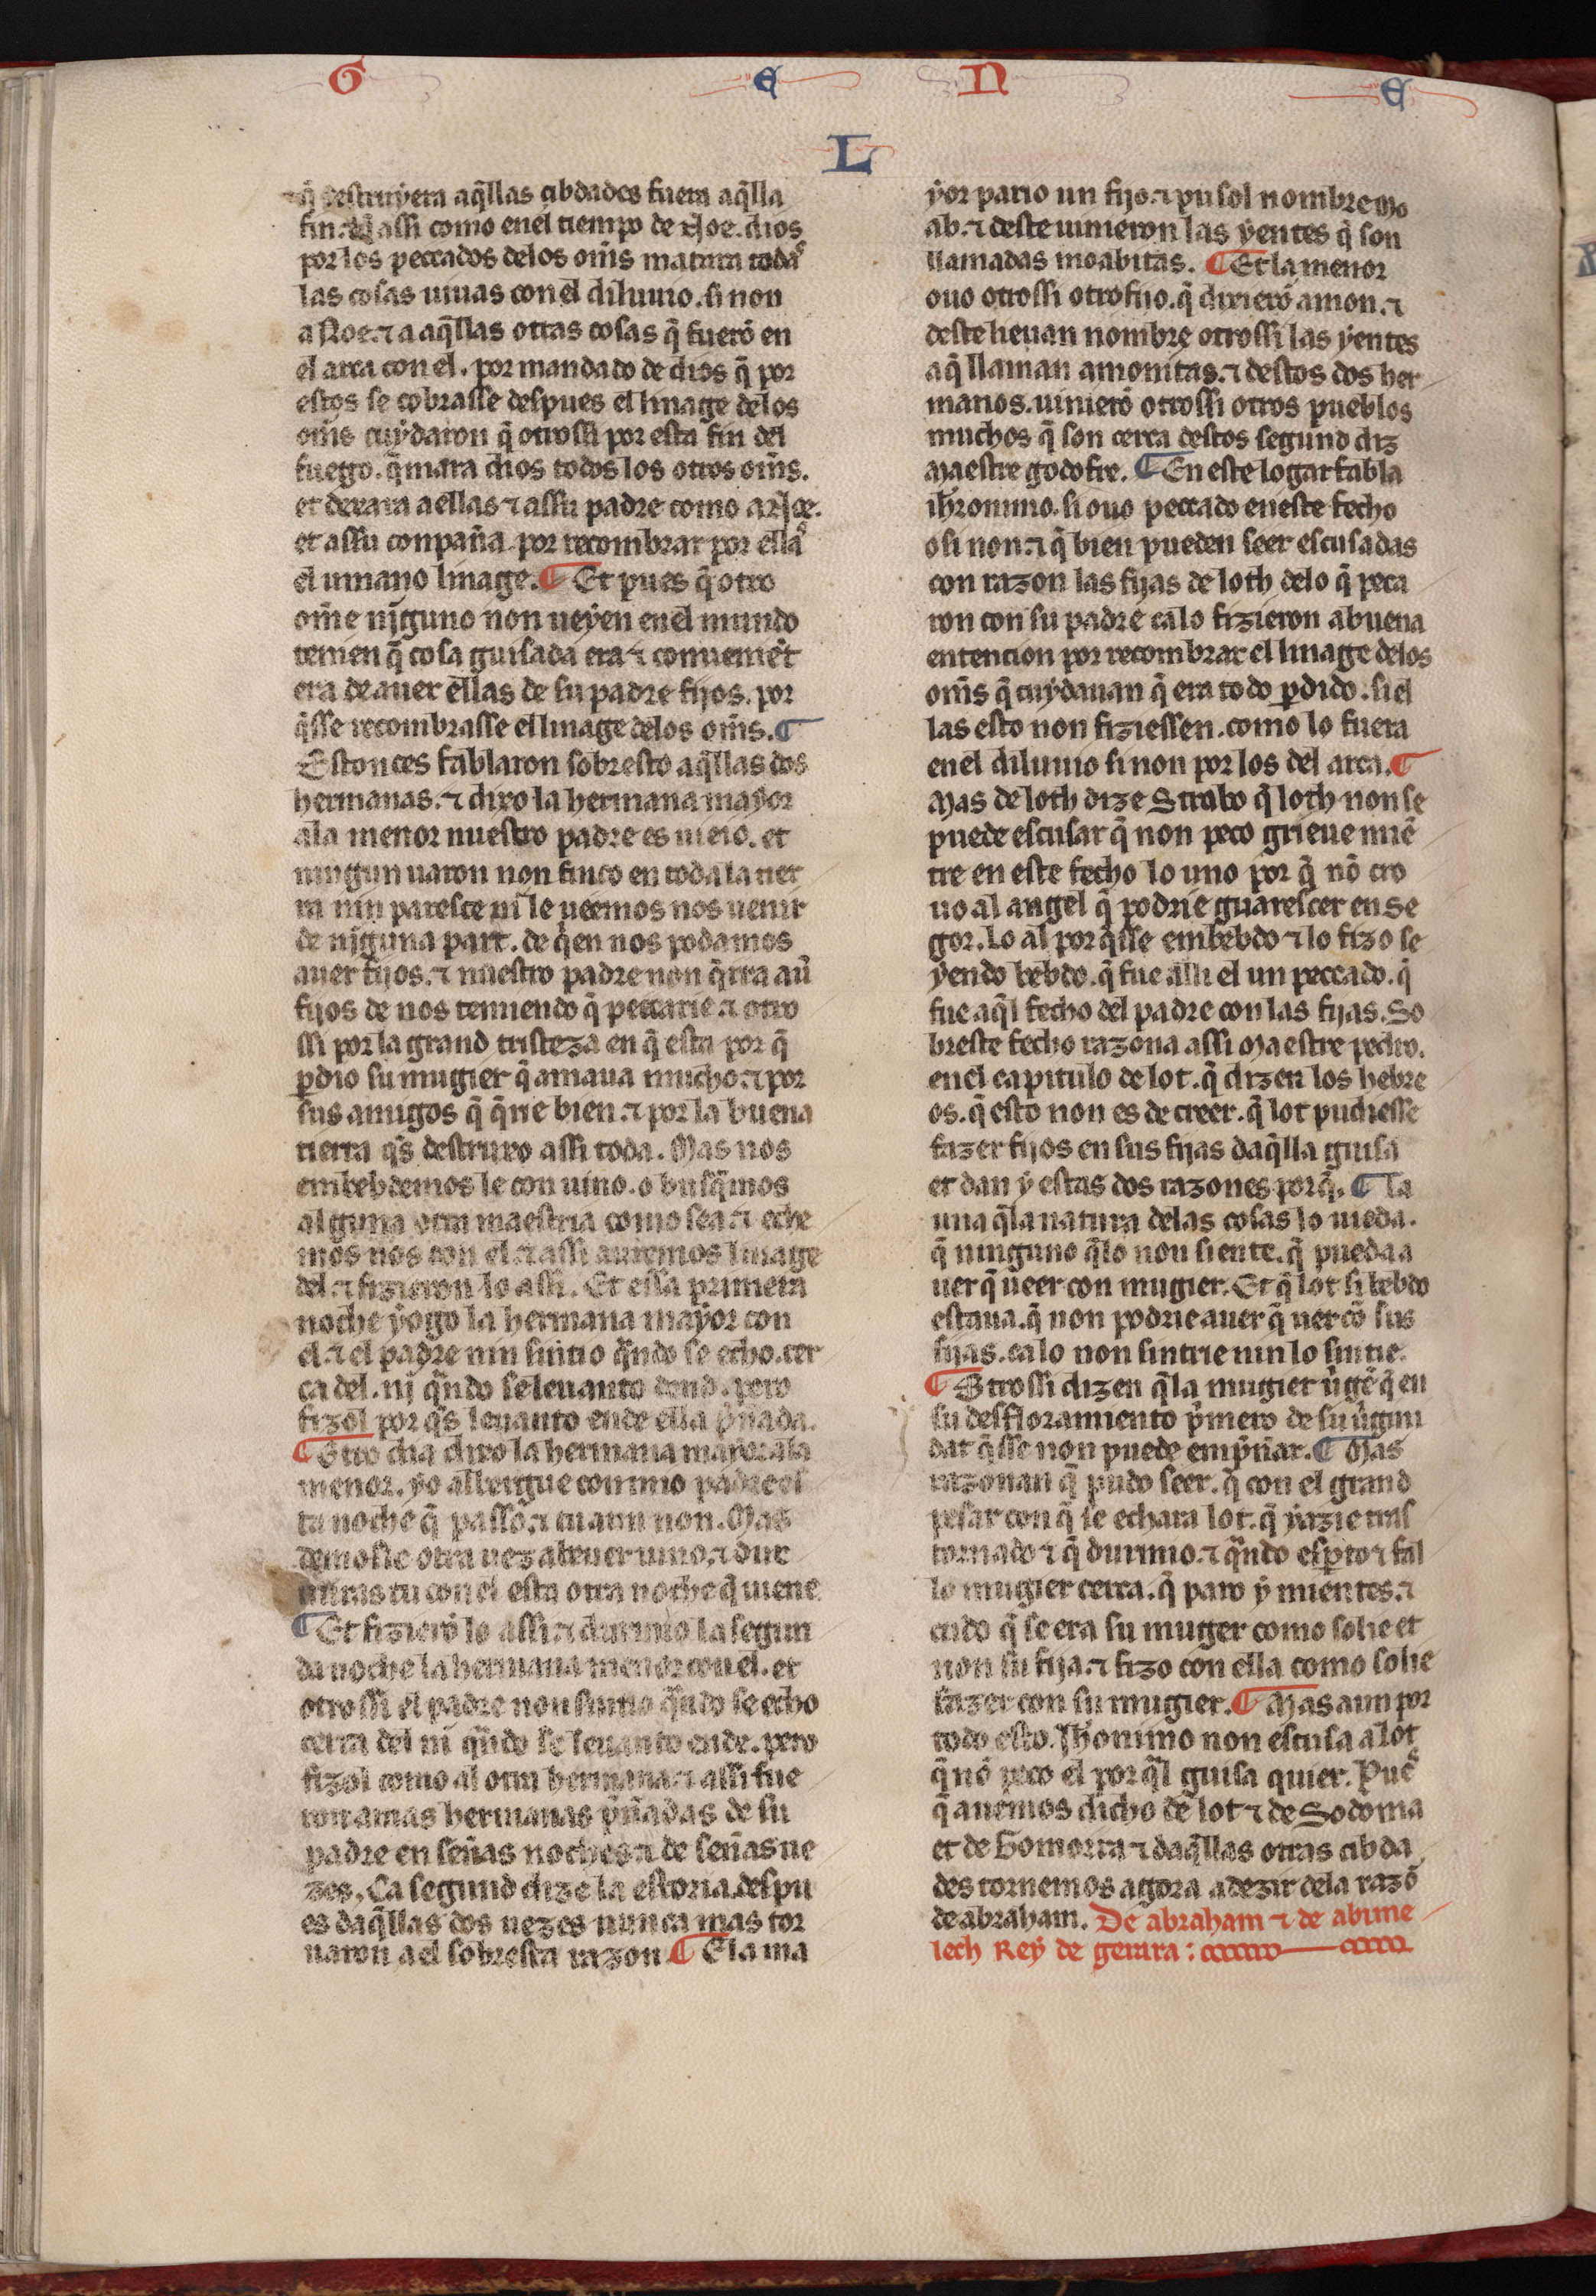 G E N E
L
q̃ destruyera aq̃llas cibdades fuera aq̃lla
fin. assi como enel tiempo de Noe. dios
por los peccados delos om̃s matara todas
las cosas uiuas conel diluuio. si non
a Noe. ⁊ a aq̃llas otras cosas q̃ fuerõ en
el arca con el. por mandado de dios q̃ por
estos se cobrasse despues el linage delos
om̃s cuydaron q̃ otrossi por esta fin del
fuego. q̃mara dios todos los otros om̃s.
et dexara a ellas ⁊ assu padre como a Noe.
et assu conpaña. por recombrar por ellas
el umano linage. ¶ Et pues q̃ otro
om̃e nĩguno non ueyen enel mundo
temien q̃ cosa guisada era ⁊ conueniẽt
era de auer ellas de su padre fijos. por
q̃sse recombrasse el linage delos om̃s. ¶
Estonces fablaron sobresto aq̃llas dos
hermanas. ⁊ dixo la hermana mayor
ala menor nuestro padre es uieio. et
ningun uaron non finco en toda la tier
ra nin paresce nĩ le ueemos nos uenir
de nĩguna part. de q̃en nos podamos
auer fijos. ⁊ nuestro padre non q̃rra aũ
fijos de nos temiendo q̃ peccarie. ⁊ otro
ssi por la grand tristeza en q̃ esta por q̃
ꝑdio su mugier q̃ amaua mucho. ⁊ por
sus amigos q̃ q̃rie bien. ⁊ por la buena
tierra q̃s destruxo assi toda. Mas nos
embebdemos le con uino. o busq̃mos
alguna otra maestria como sea. ⁊ eche
mos nos con el. ⁊ assi auremos linage
del. ⁊ fizieron lo assi. Et essa primera
noche yogo la hermana mayor con
el. ⁊ el padre nin sintio q̃ndo se echo. cer
ca del. nĩ q̃ndo se leuanto dend. pero
fizol por q̃s leuanto ende ella p̃ñada.
¶ Otro dia dixo la hermana mayor ala
menor. yo allergue con mio padre es
ta noche q̃ passo. ⁊ tu aun non. Mas
demosle otra uez a beuer uino. ⁊ dur
miras tu con el esta otra noche q̃ uiene
¶ Et fizierõ lo assi. ⁊ durmio la segun
da noche la hermana menor con el. et
otrossi el padre non sintio q̃ndo se echo
cerca del nĩ q̃ndo se leuanto ende. pero
fizol como al otra hermana. ⁊ assi fue
ron amas hermanas p̃ñadas de su
padre en señas noches. ⁊ de señas ue
zes. Ca segund dize la estoria. despu
es daq̃llas dos uezes nunca mas tor
naron a el sobresta razon ¶ E la ma
yor pario un fijo. ⁊ pusol nombre Mo
ab. ⁊ deste uinieron las yentes q̃ son
llamadas moabitas. ¶ Et la menor
ouo otrossi otro fijo. q̃ dixierõ amon. ⁊
deste lieuan nombre otrossi las yentes
a q̃ llaman amonitas. ⁊ destos dos her
manos. uinierõ otrossi otros pueblos
muchos q̃ son cerca destos segund diz
Maestre godofre. ¶ En este logar fabla
ihronimo. si ouo peccado en este fecho
o si non. ⁊ q̃ bien pueden seer escusadas
con razon las fijas de loth delo q̃ peca
ron con su padre ca lo fizieron a buena
entencion por recombrar el linage delos
om̃s q̃ cuydauan q̃ era todo ꝑdido. si el
las esto non fiziessen. como lo fuera
enel diluuio si non por los del arca. ¶
Mas de loth dize Strabo q̃ loth non se
puede escusar q̃ non peco grieue miẽ
tre en este fecho lo uno por q̃ nõ cro
uo al angel q̃ podrie guarescer en Se
gor. Lo al por q̃sse embebdo ⁊ lo fizo se
yendo bebdo. q̃ fue alli el un peccado. q̃
fue aq̃l fecho del padre con las fijas. So
breste fecho razona assi Maestre pedro.
enel capitulo de lot. q̃ dizen los hebre
os. q̃ esto non es de creer. q̃ lot pudiesse
fazer fijos en sus fijas daq̃lla guisa
et dan y estas dos razones por q̃. ¶ La
una q̃ la natura delas cosas lo uieda.
q̃ ninguno q̃lo non siente. q̃ pueda a
uer q̃ ueer con mugier. Et q̃ lot si bebdo
estaua. q̃ non podrie auer q̃ uer cõ sus
fijas. ca lo non sintrie nin lo sintie.
¶ Otrossi dizen q̃ la mugier ũgẽ q̃ en
su desfloramiento p̃mero de su ũgini
dat q̃sse non puede emp̃ñar. ¶ Mas
razonan q̃ pudo seer. q̃ con el grand
pesar con q̃ se echara lot. q̃ yazie tras
tornado ⁊ q̃ durmio. ⁊ q̃ndo esꝑto ⁊ fal
lo mugier cerca. q̃ paro y mientes. ⁊
cuido q̃ se era su muger como solie et
non su fija. ⁊ fizo con ella como solie
fazer con su mugier. ¶ Mas aun por
todo esto. Jhonimo non escusa a lot
q̃ nõ peco el por q̃l guisa quier. Pues
q̃ auemos dicho de lot ⁊ de Sodoma
et de Gomorra ⁊ daq̃llas otras cibda
des tornemos agora a dezir dela razõ
de abraham. De abraham ⁊ de abime
lech Rey de gerara: